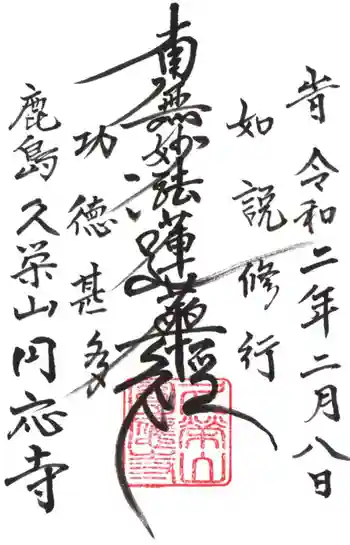 旹令和二年二月八日
如説修行
南無妙法蓮華経
功徳甚多
鹿島久栄山円応寺